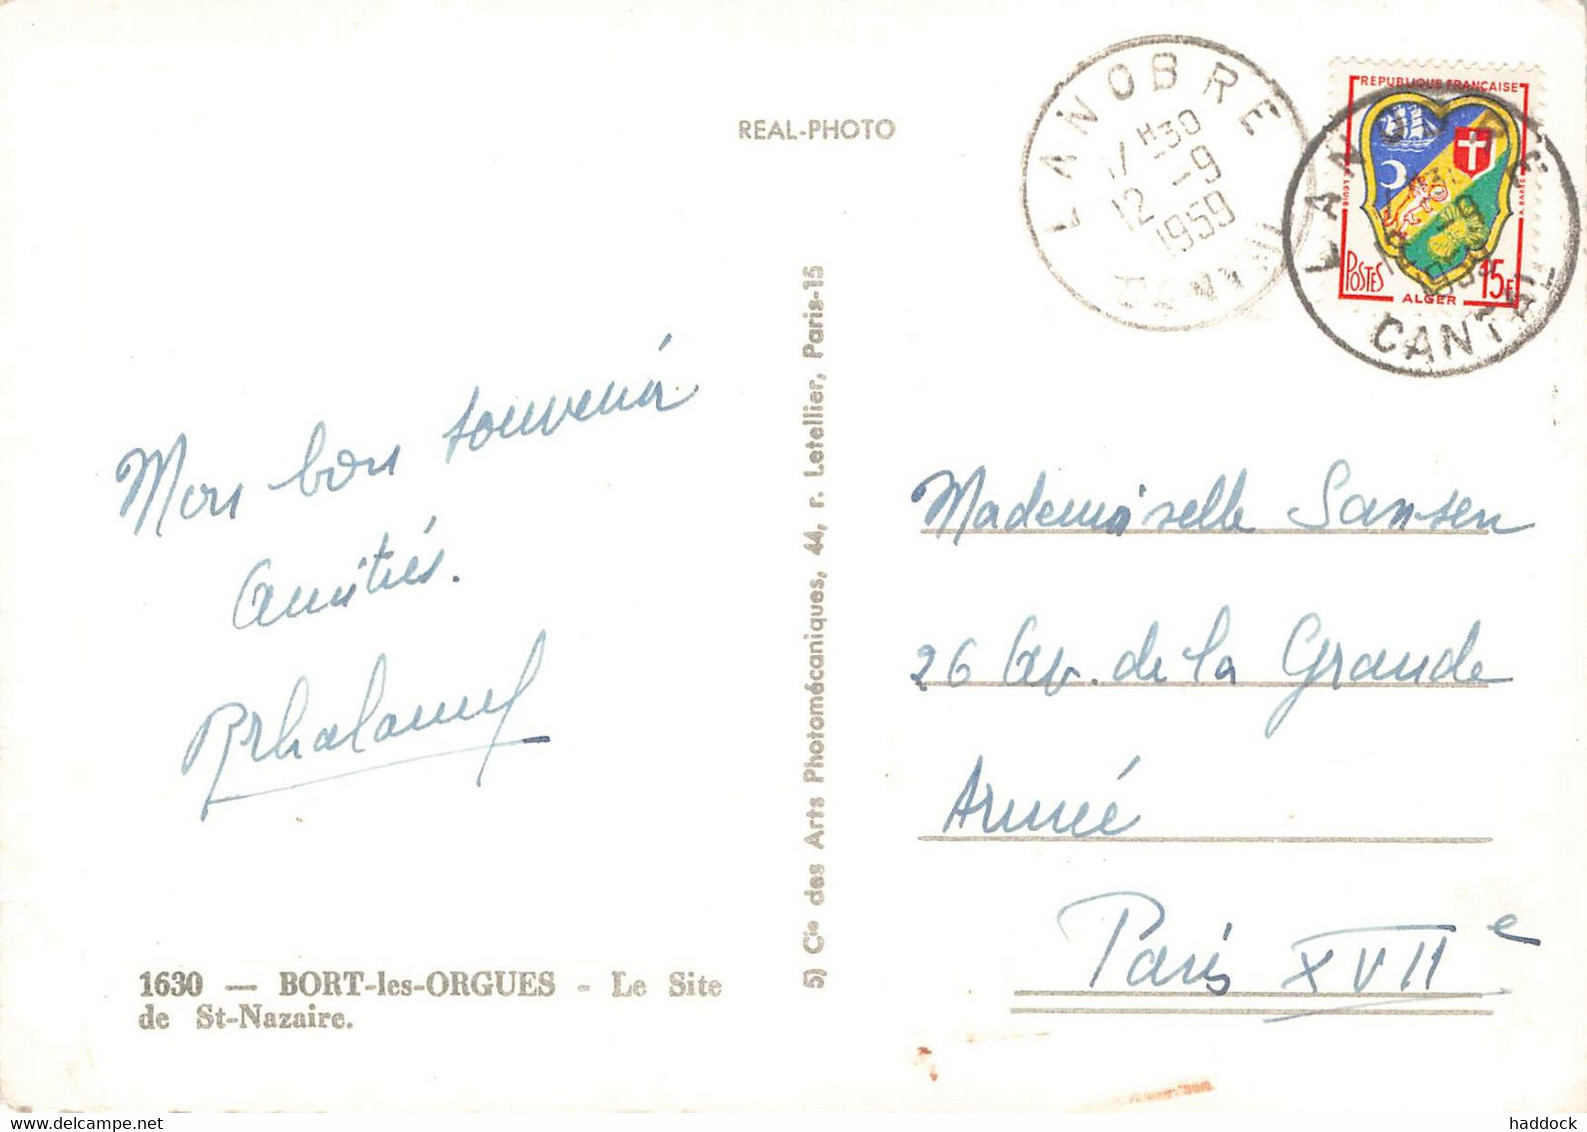 REAL-PHOTO
LANOBRE
17H30
12 -9
1959
CANTAL
REPUBLIQUE FRANÇAISE
POSTES
ALGER
15F
LANOBRE
CANTAL
Mon bon souvenir
Amitiés.
Mademoiselle Sansen
26 Av. de la Grande
Armée
Paris XVIIe
5) Cie des Arts Photomécaniques, 44, r. Letellier, Paris-15
1630 — BORT-les-ORGUES - Le Site
de St-Nazaire.
delcampe.net
haddock